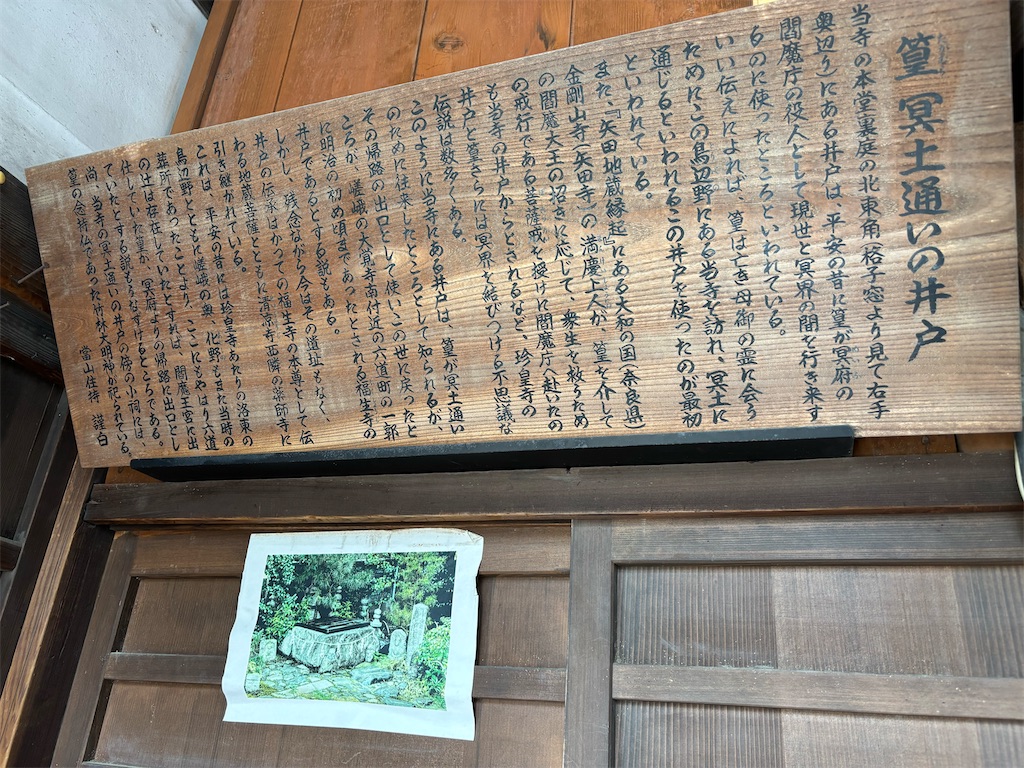 篁 冥土通いの井戸
当寺の本堂裏庭の北東角(格子窓より見て右手
奥辺り)にある井戸は、平安の昔に篁が冥府の
閻魔庁の役人として現世と冥界の間を行き来す
るのに使ったところといわれている。
いい伝えによれば、篁は亡き母御の霊に会う
ためにこの鳥辺野にある当寺を訪れ、冥土に
通じるといわれるこの井戸を使ったのが最初
といわれている。
また、『矢田地蔵縁起』にある大和の国(奈良県)
金剛山寺(矢田寺)の満慶上人が、篁を介して
の閻魔大王の招きに応じて、衆生を救うため
の戒行である菩薩戒を授けに閻魔庁へ赴いたの
も当寺の井戸からとされるなど、珍皇寺の
井戸と篁さらには冥界を結びつける不思議な
伝説は数多くある。
このように当寺にある井戸は、篁が冥土通い
のために往来したところとして知られるが、
その帰路の出口として使い、この世に戻ったと
ころが、嵯峨の大覚寺南付近の六道町の一郭
に明治の初め頃まであったとされる福生寺の
井戸であるとする説もある。
しかし、残念ながら今はその遺址もなく、
井戸の伝承はかつての福生寺の本尊として伝
わる地蔵菩薩とともに清凉寺西隣の薬師寺に
引き継がれている。
これは、平安の昔には珍皇寺あたりの洛東の
鳥辺野とともに嵯峨の奥、化野もまた当時の
葬所であったことより、ここにもやはり六道
の辻は存在していたとすれば、閻魔王宮に出
仕していた篁が、冥府よりの帰路に出口とし
ていたとする説もうなずけるところである。
尚、当寺の冥土通いの井戸の傍の小祠には、
篁の念持仏であった竹林大明神が祀られている。
當山住持 謹白